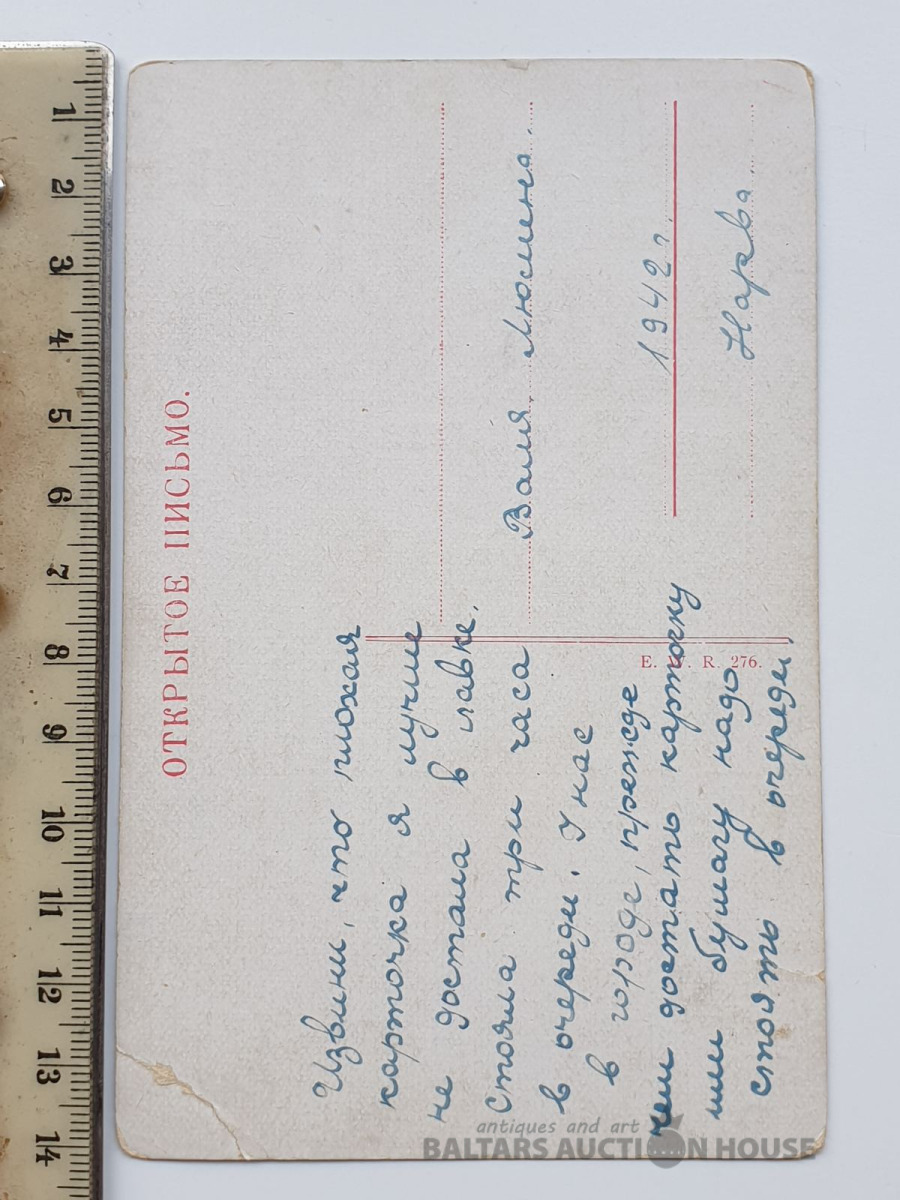 ОТКРЫТОЕ ПИСЬМО.
Извини, что плохая
карточка я лучше
не достала в лавке.
Стояла три часа
в очереди. У нас
в городе, прежде
чем достать карточку
или бумагу надо
стоять в очереди
Валя Люсмена.
1942 г.
Нарва
E. W. R. 276.
1
2
3
4
5
6
7
8
9
10
11
12
13
14
antiques and art
BALTARS AUCTION HOUSE